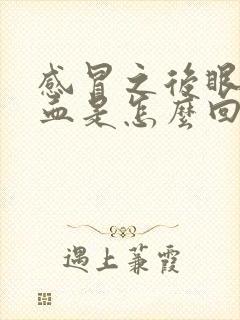 感冒之後眼
血是怎麼回
遇上蒹霞